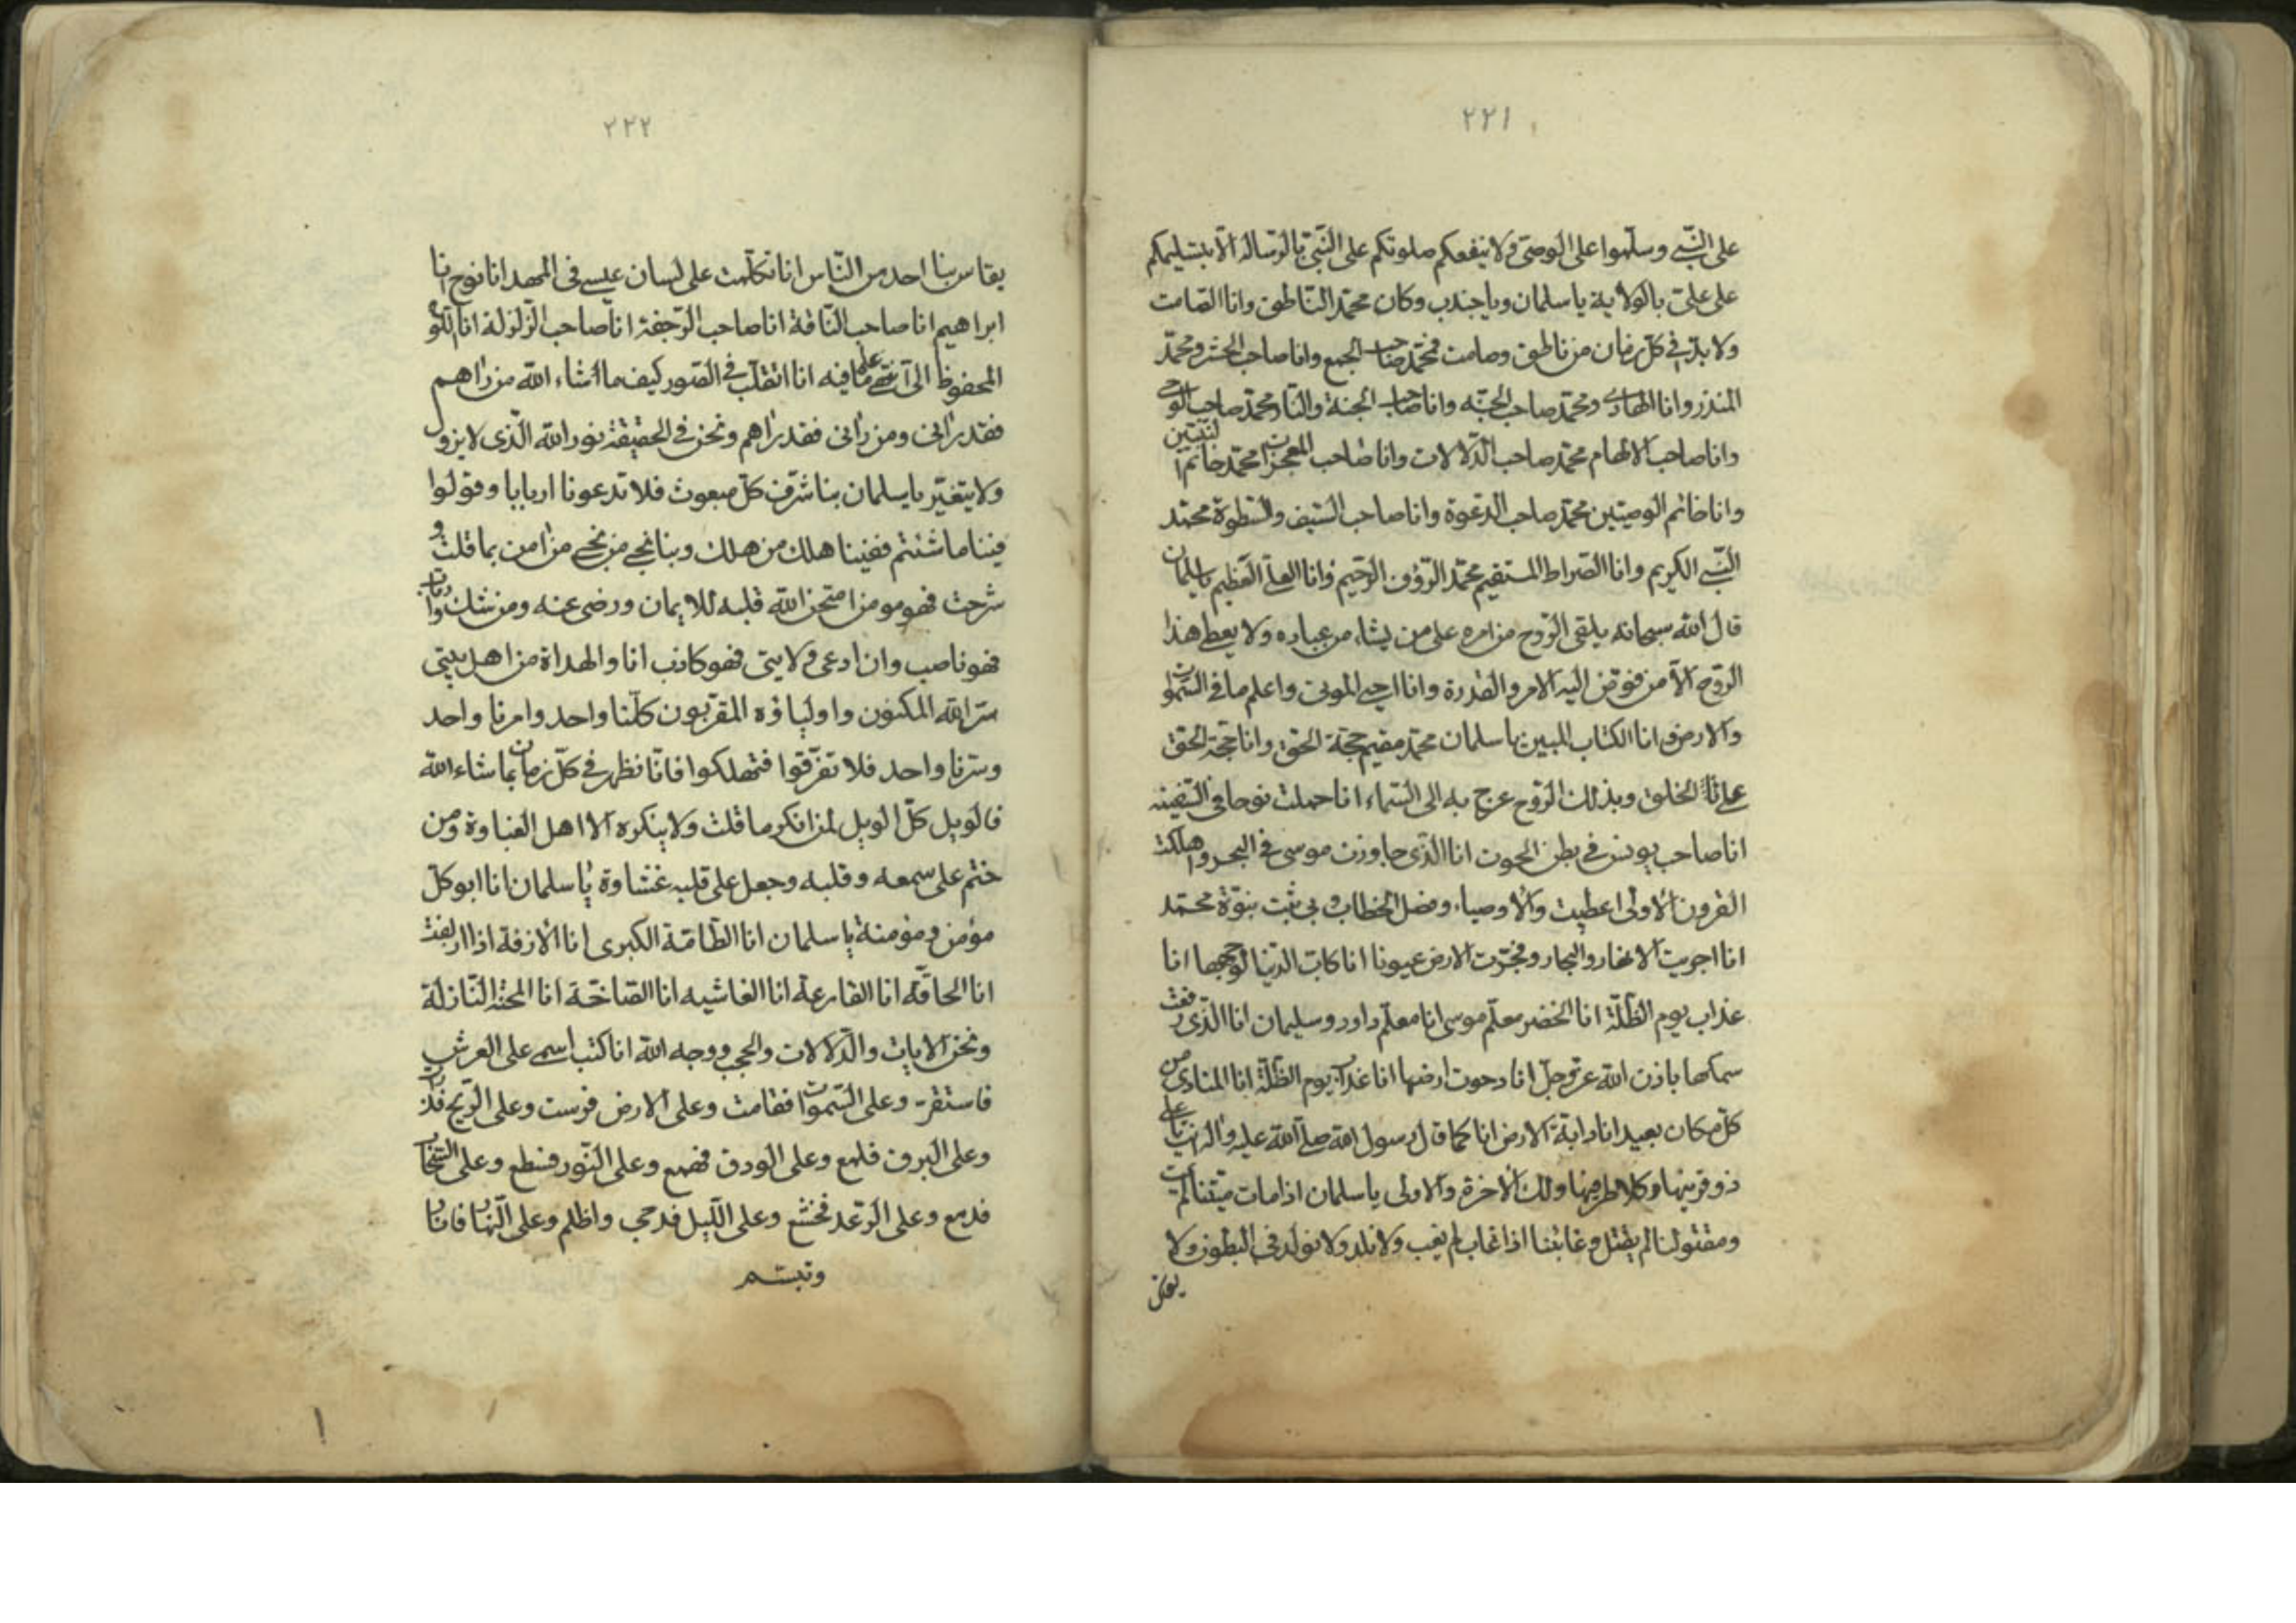 ٢٢١
على النبي وسلموا على الوصي ولا ينفعكم صلوتكم على النبي بالرسالة الا بتسليمكم
على علي بالولاية يا سلمان ويا جندب وكان محمد الناطق وانا الصامت
ولا بد في كل زمان من ناطق وصامت فمحمد صاحب الجمع وانا صاحب الحشر ومحمد
المنذر وانا الهادي ومحمد صاحب الجنة وانا صاحب الجنة والنار محمد صاحب الوحي
وانا صاحب الالهام محمد صاحب الدلالات وانا صاحب المعجزات محمد خاتم النبيين
وانا خاتم الوصيين محمد صاحب الدعوة وانا صاحب السيف والسطوة محمد
النبي الكريم وانا الصراط المستقيم محمد الرؤف الرحيم وانا العلي العظيم يا سلمان
قال الله سبحانه يلقى الروح من امره على من يشاء من عباده ولا يعطى هذا
الروح الا من فوض اليه الامر والقدرة وانا احيي الموتى واعلم ما في السموات
والارض وانا الكتاب المبين يا سلمان محمد مقيم حجة الحق وانا حجة الحق
على الخلق وبذلك الروح عرج به الى السماء انا حملت نوحا في السفينه
انا صاحب يونس في بطن الحوت انا الذي جاوزت موسى في البحر واهلكت
القرون الاولى اعطيت والاوصياء وفصل الخطاب وبي ثبت بنوة محمد
انا اجريت الانهار والبحار وفجرت الارض عيونا انا كاب الدنيا لوجهها انا
عذاب يوم الظلة انا الخضر معلم موسى انا معلم داود وسليمان انا الذي رفعت
سمكها باذن الله عز وجل انا دحوت ارضها انا عذاب يوم الظلة انا المنادى من
كل مكان بعيد انا دابة الارض انا كما قال رسول الله صلى الله عليه واله انت يا علي
ذو قرنيها وكلا طرفيها ولك الاخرة والاولى يا سلمان اذا مات ميتنا لم يمت
ومقتولنا لم يقتل وغائبنا اذا غاب لم يغب ولا نلد ولا نولد في البطون ولا
يقاس
٢٢٢
يقاس بنا احد من الناس انا تكلمت على لسان عيسى في المهد انا نوح انا
ابراهيم انا صاحب الناقة انا صاحب الرجفة انا صاحب الزلزلة انا اللوح
المحفوظ الى انتهى علم ما فيه انا انقلب في الصور كيف ما شاء الله من راهم
فقد راني ومن راني فقد راهم ونحن في الحقيقة نور الله الذي لا يزول
ولا يتغير يا سلمان بنا شرف كل مبعوث فلا تدعونا اربابا وقولوا
فينا ما شئتم ففينا هلك من هلك وبنا نجى من نجى من امن بما قلت و
شرحت فهو مومن امتحن الله قلبه للايمان ورضى عنه ومن شك وارتاب
فهو ناصب وان ادعى ولايتي فهو كاذب انا والهداة من اهل بيتي
سر الله المكنون واولياؤه المقربون كلنا واحد وامرنا واحد
وسرنا واحد فلا تفرقوا فتهلكوا فانا نظهر في كل زمان بما شاء الله
فالويل كل الويل لمن انكر ما قلت ولا ينكره الا اهل الغباوة ومن
ختم على سمعه وقلبه وجعل على قلبه غشاوة يا سلمان انا ابو كل
مؤمن ومؤمنة يا سلمان انا الطامة الكبرى انا الازفة اذا ازفت
انا الحاقة انا القارعة انا الغاشيه انا الصاخة انا المحنة النازلة
ونحن الايات والدلالات والحجب ووجه الله انا كتب اسمي على العرش
فاستقر وعلى السموات فقامت وعلى الارض فرست وعلى الريح فذرت
وعلى البرق فلمع وعلى الودق فهمع وعلى النور فسطع وعلى السحاب
فدمع وعلى الرعد فخشع وعلى الليل فدجى واظلم وعلى النهار فانار
وتبسم